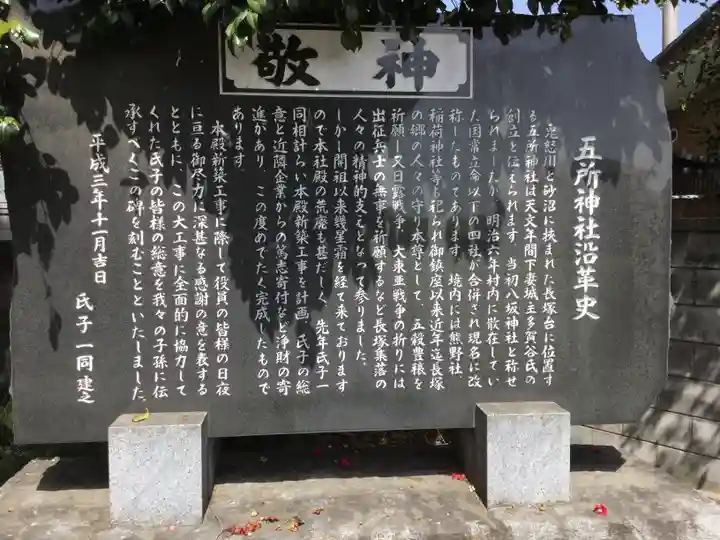 敬神
五所神社沿革史
鬼怒川と砂沼に挟まれた長塚台に位置す
る五所神社は天文年間下妻城主多賀谷氏の
創立と伝えられます 当初八坂神社と称せ
られましたが 明治六年村内に散在してい
た国常立命以下の四社が合併され現名に改
称したものであります 境内には熊野社、
稲荷神社等も祀られ御鎮座以来近年迄長塚
の郷の人々の守り本尊として 五穀豊穣を
祈願し又日露戦争、大東亜戦争の折りには
出征兵士の無事を祈願するなど長塚集落の
人々の精神的支えとなって参りました。
しかし開祖以来幾星霜を経て来ております
ので本社殿の荒廃も甚だしく 先年氏子一
同相計らい本殿新築工事を計画 氏子の総
意と近隣企業からの篤志寄付など浄財の寄
進があり この度めでたく完成したもので
あります。
本殿新築工事に際して役員の皆様の日夜
に亘る御尽力に深甚なる感謝の意を表する
とともに この大工事に全面的に協力して
くれた氏子の皆様の総意を我々の子孫に伝
承すべくこの碑を刻むことといたしました。
平成三年十一月吉日
氏子一同建之